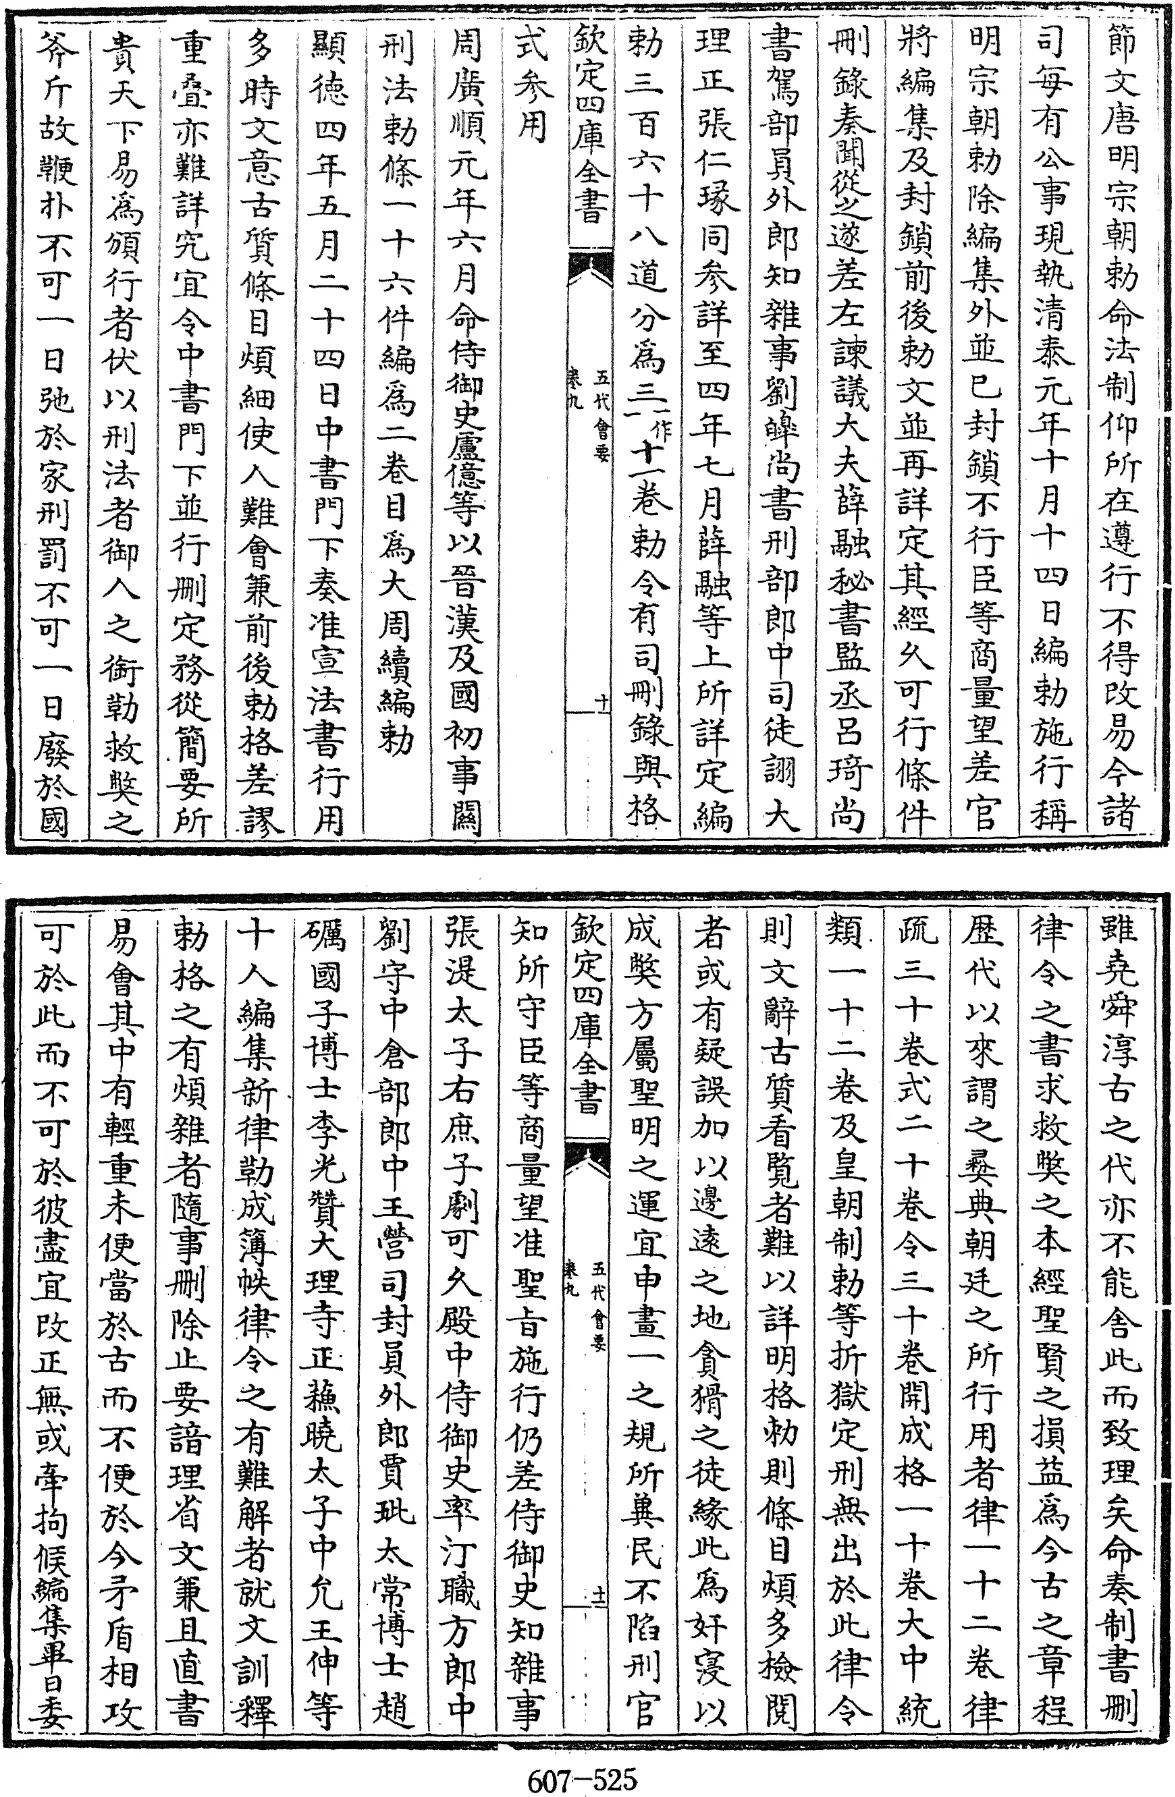 節文唐明宗朝勅命法制仰所在遵行不得改易今諸
司每有公事現執清泰元年十月十四日編勅施行稱
明宗朝勅除編集外並已封鎖不行臣等商量望差官
將編集及封鎖前後勅文並再詳定其經久可行條件
刪錄奏聞從之遂差左諫議大夫薛融秘書監丞呂琦尚
書駕部員外郎知雜事劉皥尚書刑部郎中司徒詡大
理正張仁瑑同參詳至四年七月薛融等上所詳定編
勅三百六十八道分為三一作十一卷勅令有司刪錄與格
欽定四庫全書
五代會要
卷九
十
式參用
周廣順元年六月命侍御史盧億等以晉漢及國初事闗
刑法勅條一十六件編為二卷目為大周續編勅
顯德四年五月二十四日中書門下奏准宣法書行用
多時文意古質條目煩細使人難會兼前後勅格差謬
重疊亦難詳究宜令中書門下並行刪定務從簡要所
貴天下易為頒行者伏以刑法者御人之銜勒救弊之
斧斤故鞭扑不可一日弛於家刑罰不可一日廢於國
雖堯舜淳古之代亦不能舍此而致理矣命奏制書刪
律令之書求救弊之本經聖賢之損益為今古之章程
歷代以來謂之彞典朝廷之所行用者律一十二卷律
疏三十卷式二十卷令三十卷開成格一十卷大中統
類一十二卷及皇朝制勅等折獄定刑無出於此律令
則文辭古質看覧者難以詳明格勅則條目煩多檢閱
者或有疑誤加以邊遠之地貪猾之徒緣此為奸寖以
成弊方屬聖明之運宜申畫一之規所兾民不陷刑官
欽定四庫全書
五代會要
卷九
十一
知所守臣等商量望准聖旨施行仍差侍御史知雜事
張湜太子右庶子劇可久殿中侍御史率汀職方郎中
劉守中倉部郎中王瑩司封員外郎賈玭太常博士趙
礪國子博士李光贊大理寺正蘓曉太子中允王伸等
十人編集新律勒成簿帙律令之有難解者就文訓釋
勅格之有煩雜者隨事刪除止要諳理省文兼且直書
易會其中有輕重未便當於古而不便於今矛盾相攻
可於此而不可於彼盡宜改正無或牽拘候編集畢日委
607-525